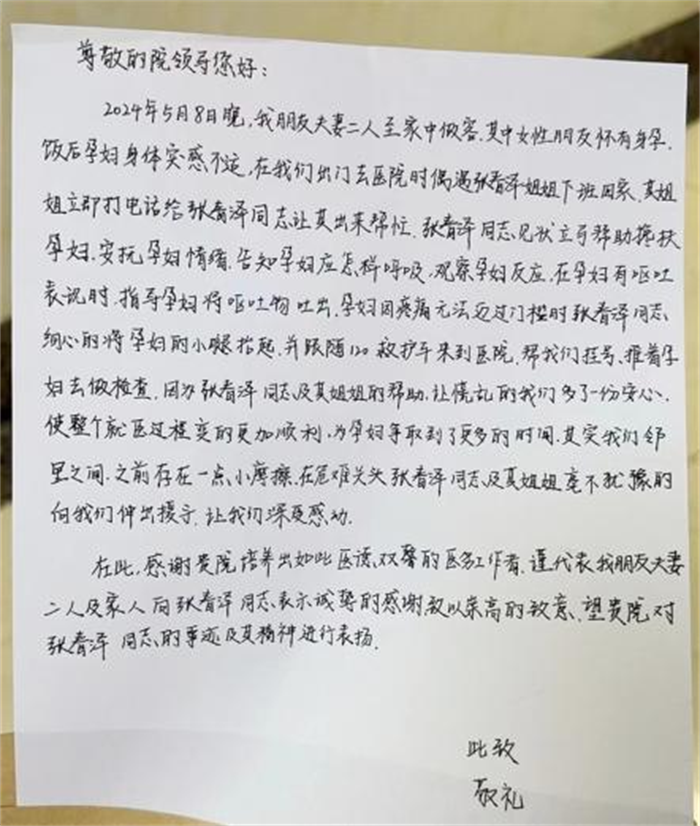 尊敬的院领导您好：
2024年5月8日晚，我朋友夫妻二人至家中做客，其中女性朋友怀有身孕，
饭后孕妇身体突感不适，在我们出门去医院时偶遇张春泽姐姐下班回家，其姐
姐立即打电话给张春泽同志让其出来帮忙，张春泽同志见状立马帮助搀扶
孕妇，安抚孕妇情绪，告知孕妇应怎样呼吸，观察孕妇反应，在孕妇有呕吐
表现时，指导孕妇将呕吐物吐出，孕妇因疼痛无法迈过门槛时张春泽同志
细心的将孕妇的小腿抬起，并跟随120救护车来到医院，帮我们挂号，推着孕
妇去做检查，因为张春泽同志及其姐姐的帮助，让慌乱的我们多了一份安心，
使整个就医过程变的更加顺利，为孕妇争取到了更多的时间，其实我们邻
里之间，之前存在一点小摩擦，在危难关头张春泽同志及其姐姐毫不犹豫的
向我们伸出援手，让我们深受感动。
在此，感谢贵院培养出如此医德双馨的医务工作者，谨代表我朋友夫妻
二人及家人向张春泽同志表示诚挚的感谢，致以崇高的敬意，望贵院对
张春泽同志的事迹及其精神进行表扬。
此致
敬礼